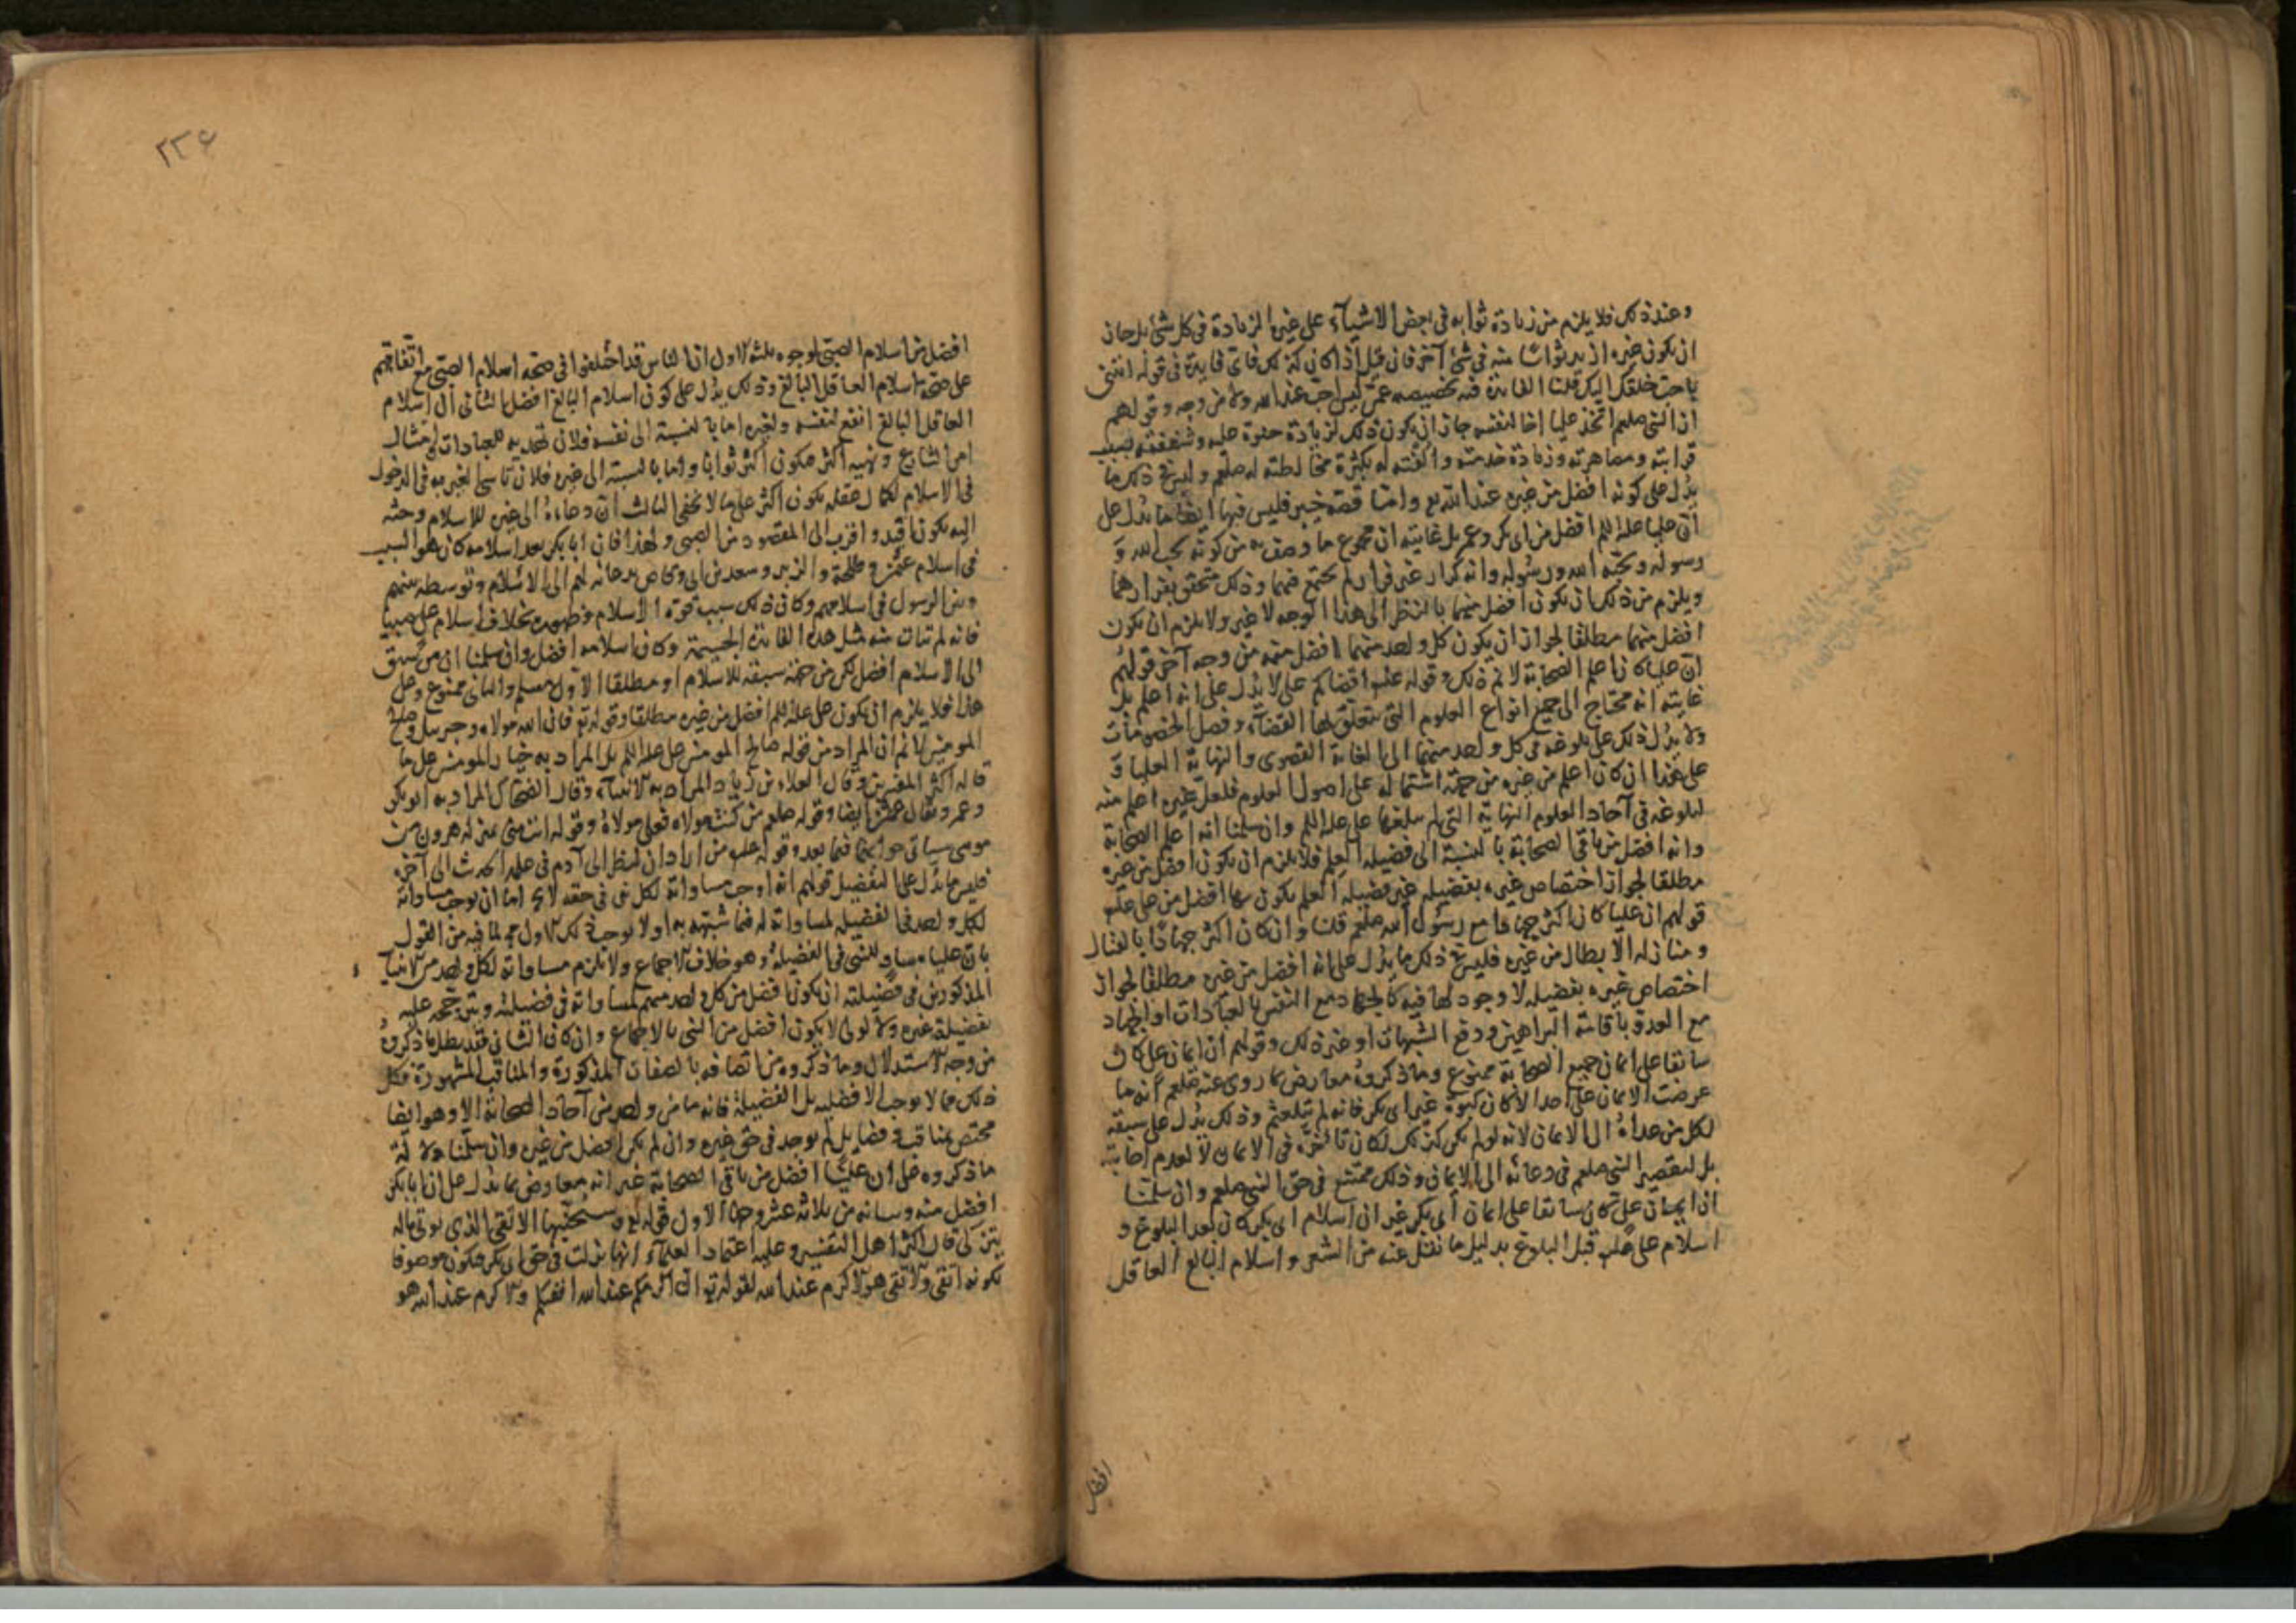 وعند ذلك فلا يلزم من زيادة ثوابه في بعض الاشياء على غيره الزيادة في كل شئ بل جاز
ان يكون غيره ازيد ثوابا منه في شئ آخر فان قيل اذا كان كذلك فاى فايدة في قوله ائتنى
باحب خلقك اليك قلنا الفايدة فيه تخصيصه عمن ليس احب عند الله ولا من وجه وقولهم
ان النبي صلعم اتخذ عليا اخا لنفسه جاز ان يكون ذلك لزيادة حنوه عليه وشفقته بسبب
قرابته ومصاهرته وزيادة خدمته والفته له بكثرة مخالطته له صلعم وليس في ذلك ما
يدل على كونه افضل من غيره عند الله تع واما قصة خيبر فليس فيها ايضا ما يدل على
ان عليا عليه السلم افضل من ابى بكر وعمر بل غايته ان مجموع ما وصف به من كونه يحب الله و
رسوله ويحبه الله ورسوله وانه كرار غير فرار لم يجتمع فيهما وذلك متحقق بفرارهما
ويلزم من ذلك ان يكون افضل منهما بالنظر الى هذا الوجه لا غير ولا يلزم ان يكون
افضل منهما مطلقا لجواز ان يكون كل واحد منهما افضل منه من وجه آخر قولهم
ان عليا كان اعلم الصحابة لا نم ذلك وقوله علم اقضاكم على لا يدل على انه اعلم بل
غايته انه محتاج الى جميع انواع العلوم التى يتعلق بها القضاء وفصل الخصومات
ولا يدل ذلك على بلوغه في كل واحد منهما الى الغاية القصوى والنهاية العليا و
على هذا ان كان اعلم من غيره من جهة اشتماله على اصول العلوم فلعل غيره اعلم منه
لبلوغه في آحاد العلوم النهاية التى لم يبلغها على عليه السلم وان سلمنا انه اعلم الصحابة
وانه افضل من باقى الصحابة بالنسبة الى فضيلة العلم فلا يلزم ان يكون افضل من غيره
مطلقا لجواز اختصاص غيره بفضيله غير فضيلة العلم يكون بها افضل من على علم
قولهم ان عليا كان اكثر جهادا مع رسول الله صلعم قلنا وان كان اكثر جهادا بالقتال
ومنازلة الابطال من غيره فليس في ذلك ما يدل على انه افضل من غيره مطلقا لجواز
اختصاص غيره بفضيله لا وجود لها فيه كالجهاد مع النفس بالعبادات او الجهاد
مع العدو باقامة البراهين ودفع الشبهات او غير ذلك وقولهم ان ايمان على كان
سابقا على ايمان جميع الصحابة ممنوع وما ذكروه معارض بما روى عنه صلعم انه ما
عرضت الايمان على احد الا كان كبوة غير ابى بكر فانه لم يتلعثم وذلك يدل على سبقه
لكل من عداه الى الايمان لانه لو لم يكن كذلك لكان تاخره في الايمان لا لعدم اجابته
بل لتقصير النبي صلعم في دعائه الى الايمان وذلك ممتنع في حق النبي صلعم وان سلمنا
ان ايمان على كان سابقا على ايمان ابى بكر غير ان اسلام ابى بكر كان بعد البلوغ و
اسلام على علم قبل البلوغ بدليل ما نقل عنه من الشعر واسلام البالغ العاقل
افضل
٢٣۶
افضل من اسلام الصبى لوجوه ثلثه الاول ان الناس قد اختلفوا في صحة اسلام الصبى مع اتفاقهم
على صحة اسلام العاقل البالغ وذلك يدل على كون اسلام البالغ افضل الثانى ان اسلام
العاقل البالغ انفع لنفسه ولغيره اما بالنسبة الى نفسه فلان تعبده للعبادات وامتثال
امر الشارع ونهيه اكثر فيكون اكثر ثوابا واما بالنسبة الى غيره فلان تاسى الغير به في الدخول
في الاسلام لكمال عقله يكون اكثر على ما لا يخفى الثالث ان دعاءه الى غيره للاسلام وحثه
اليه يكون اقيد واقرب الى المقصود من الصبى ولهذا فان ابا بكر بعد اسلامه كان هو السبب
في اسلام عثمن وطلحة والزبير وسعد بن ابى وقاص بدعائه لهم الى الاسلام وتوسطه بينهم
وبين الرسول في اسلامهم وكان ذلك سبب قوة الاسلام وظهوره بخلاف اسلام على صبيا
فانه لم تتات منه مثل هذه الفايدة الجسيمة وكان اسلامه افضل وان سلمنا ان من سبق
الى الاسلام افضل لكن من جهة سبقه للاسلام او مطلقا الاول مسلم والثانى ممنوع وعلى
هذا فلا يلزم ان يكون على عليه السلم افضل من غيره مطلقا وقوله تع فان الله مولاه وجبريل وصالح
المومنين لا نم ان المراد من قوله صالح المومنين على عليه السلم بل المراد به خيار المومنين على ما
قاله اكثر المفسرين وقال العلاء بن زياد المراد به الانبياء وقال الضحاك المراد به ابو بكر
وعمر ويقال عمر ايضا وقوله صلعم من كنت مولاه فعلى مولاه وقوله انت منى بمنزلة هرون من
موسى سياتى جوابهما فيما بعد وقوله علم من اراد ان ينظر الى آدم في علمه الحديث الى آخره
فليس ما يدل على التفضيل قولهم انه اوجب مساواته لكل نبى في حقه لا يخ اما ان يوجب مساواته
لكل واحد في الفضيلة لمساواته له فيما شبهه به او لا يوجب ذلك الاول مح لما فيه من القول
بان عليا مساو للنبى في الفضيلة وهو خلاف الاجماع ولانه يلزم مساواته لكل واحد من الانبيا
المذكورين في فضيلته ان يكون افضل من كل واحد منهم لمساواته في فضيلته وترجحه عليه
بفضيلة غيره والا لولى لا يكون افضل من النبى بالاجماع وان كان الثانى فقد بطل ما ذكروه
من وجه الاستدلال وما ذكروه من اتصافه بالصفات المذكورة والمناقب المشهورة فكل
ذلك مما لا يوجب الافضليه بل الفضيلة فانه ما من واحد من آحاد الصحابة الا وهو ايضا
مختص بمناقب وفضايل لم يوجد في حق غيره وان لم يكن افضل من غيره وان سلمنا دلالة
ما ذكروه على ان عليا افضل من باقى الصحابة غير انه معارض بما يدل على ان ابا بكر
افضل منه وبيانه من ثلاثة عشر وجها الاول قوله تع وسيجنبها الاتقى الذى يوتى ماله
يتزكى قال اكثر اهل التفسير وعليه اعتماد العلماء انها نزلت في حق ابى بكر فيكون موصوفا
بكونه اتقى والاتقى هو الاكرم عند الله لقوله تع ان اكرمكم عند الله اتقيكم والاكرم عند الله هو